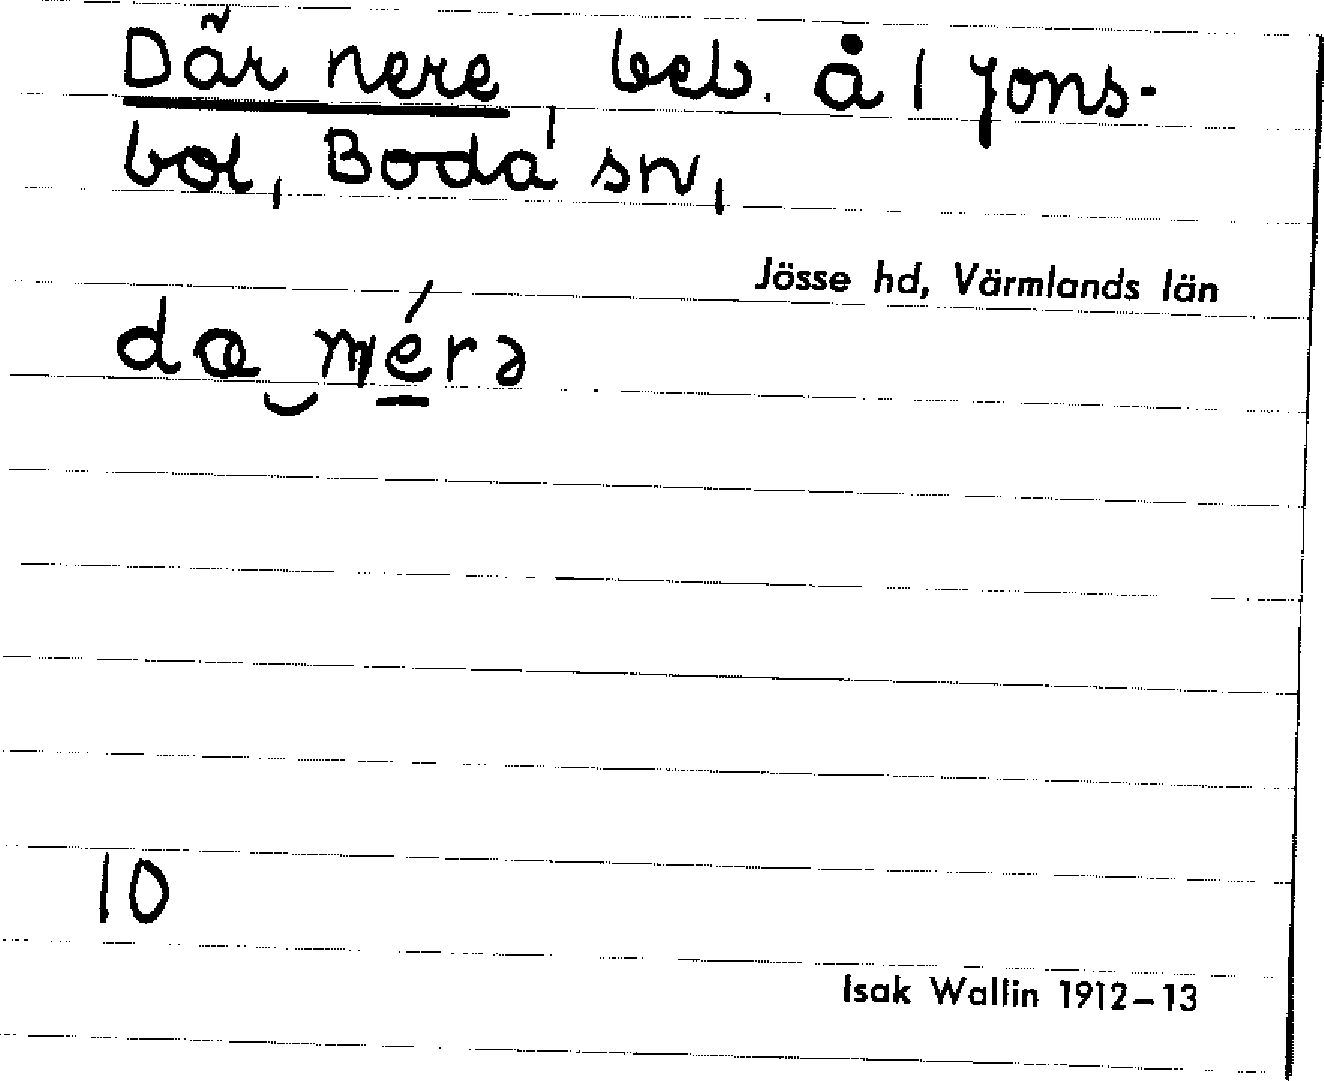 Där nere, beb. å 1 Jons-
bol, Boda sn,
Jösse hd, Värmlands län
10
Isak Wallin 1912–13